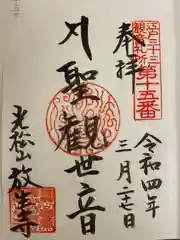 奉拝
江戸三十三
観音札所
第十五番
令和四年
三月二七日
聖觀世音
光松山
放生寺